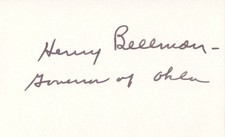 Henry Bellmon -
Governor of Okla